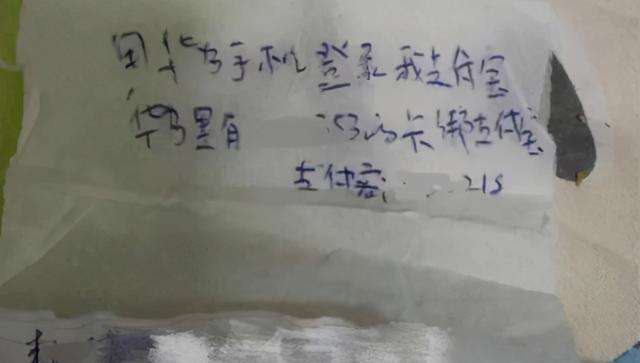 用华为手机登录我支付宝
华为里有 的卡绑支付宝
支付 215